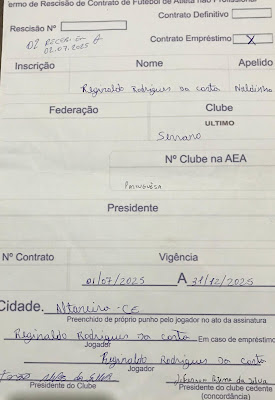 ermo de Rescisão de Contrato de Futebol de Atleta não Profissional
Contrato Definitivo
Rescisão Nº
Contrato Empréstimo X
02.07.2025
Inscrição Nome Apelido
Reginaldo Rodrigues da Costa Naldinho
Federação Clube
ULTIMO
Serrano
Nº Clube na AEA
Portuguesa
Presidente
Nº Contrato Vigência
01/07/2025 A 31/12/2025
Cidade. Altaneira-CE
Preenchido de próprio punho pelo jogador no ato da assinatura
Reginaldo Rodrigues da Costa Em caso de empréstimo
Jogador
Reginaldo Rodrigues da Costa
Jogador
da Silva
Presidente do Clube Presidente do clube cedente
(concordância)